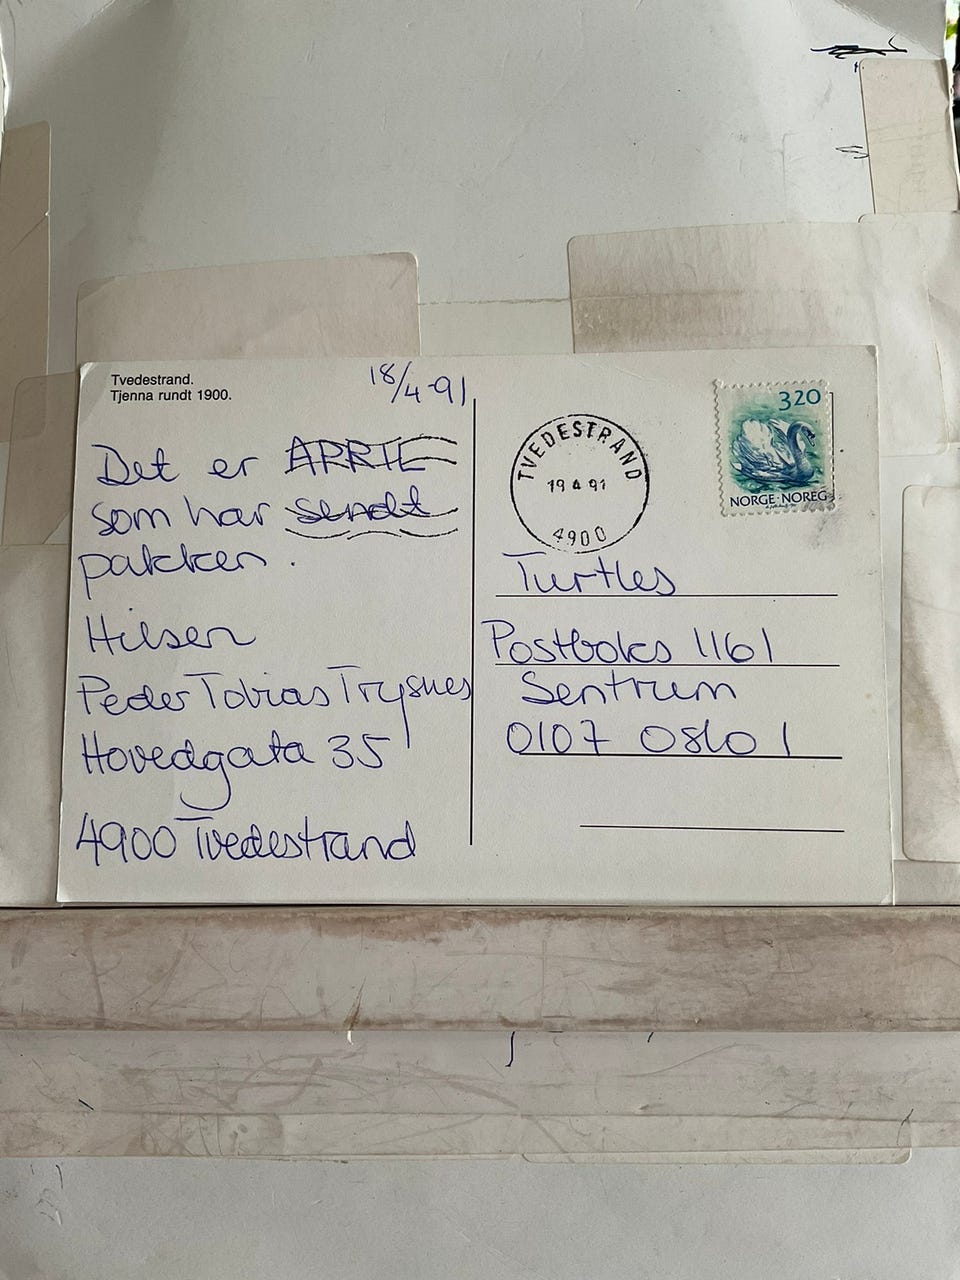 Tvedestrand.
Tjenna rundt 1900.
18/4-91
Det er APRIL
som har sendt
pakken.
Hilsen
Peder Tobias Trysnes
Hovedgata 35
4900 Tvedestrand
TVEDESTRAND
19 4 91
4900
320
NORGE·NOREG
Turtles
Postboks 1161
Sentrum
0107 Oslo 1